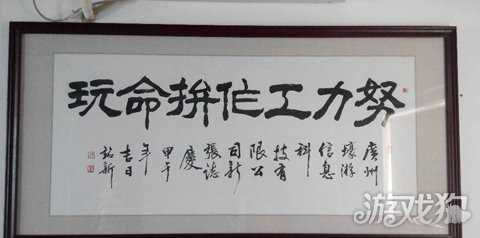 努力工作拚命玩
廣州
壕游
信息
科
技有
限公
司新
張誌
慶
甲午
年
吉日
游戏狗